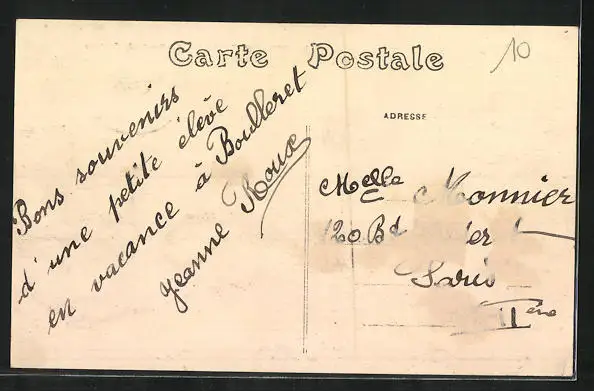 Carte Postale
10
ADRESSE
Bons souvenirs
d'une petite élève
en vacance à Boulleret
Jeanne Roux
Melle Monnier
120 Bd
Paris
II ème